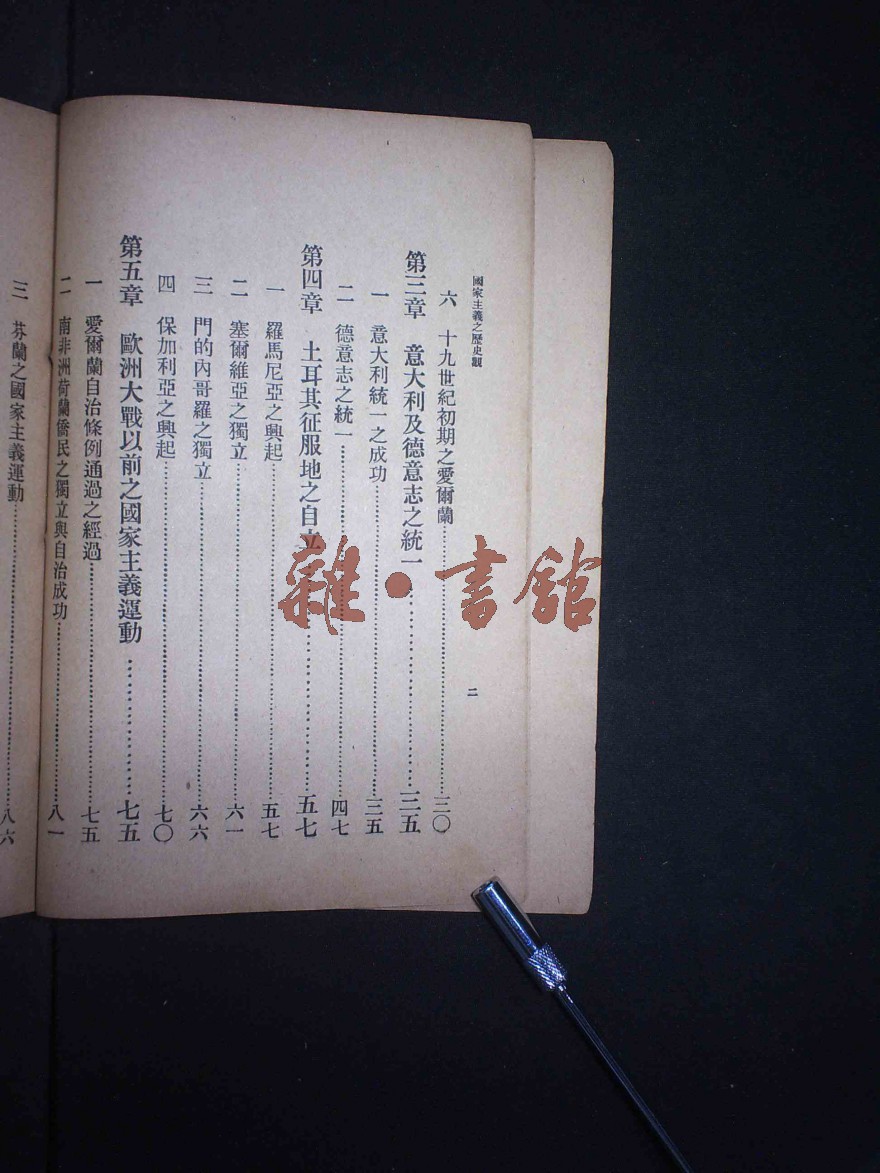 國家主義之歷史觀
六　十九世紀初期之愛爾蘭……三〇
第三章　意大利及德意志之統一……三五
一　意大利統一之成功……三五
二　德意志之統一……四七
第四章　土耳其征服地之自立……五七
一　羅馬尼亞之興起……五七
二　塞爾維亞之獨立……六一
三　門的內哥羅之獨立……六六
四　保加利亞之興起……七〇
第五章　歐洲大戰以前之國家主義運動……七五
一　愛爾蘭自治條例通過之經過……七五
二　南非洲荷蘭僑民之獨立與自治成功……八一
三　芬蘭之國家主義運動……八六
二
雜·書館